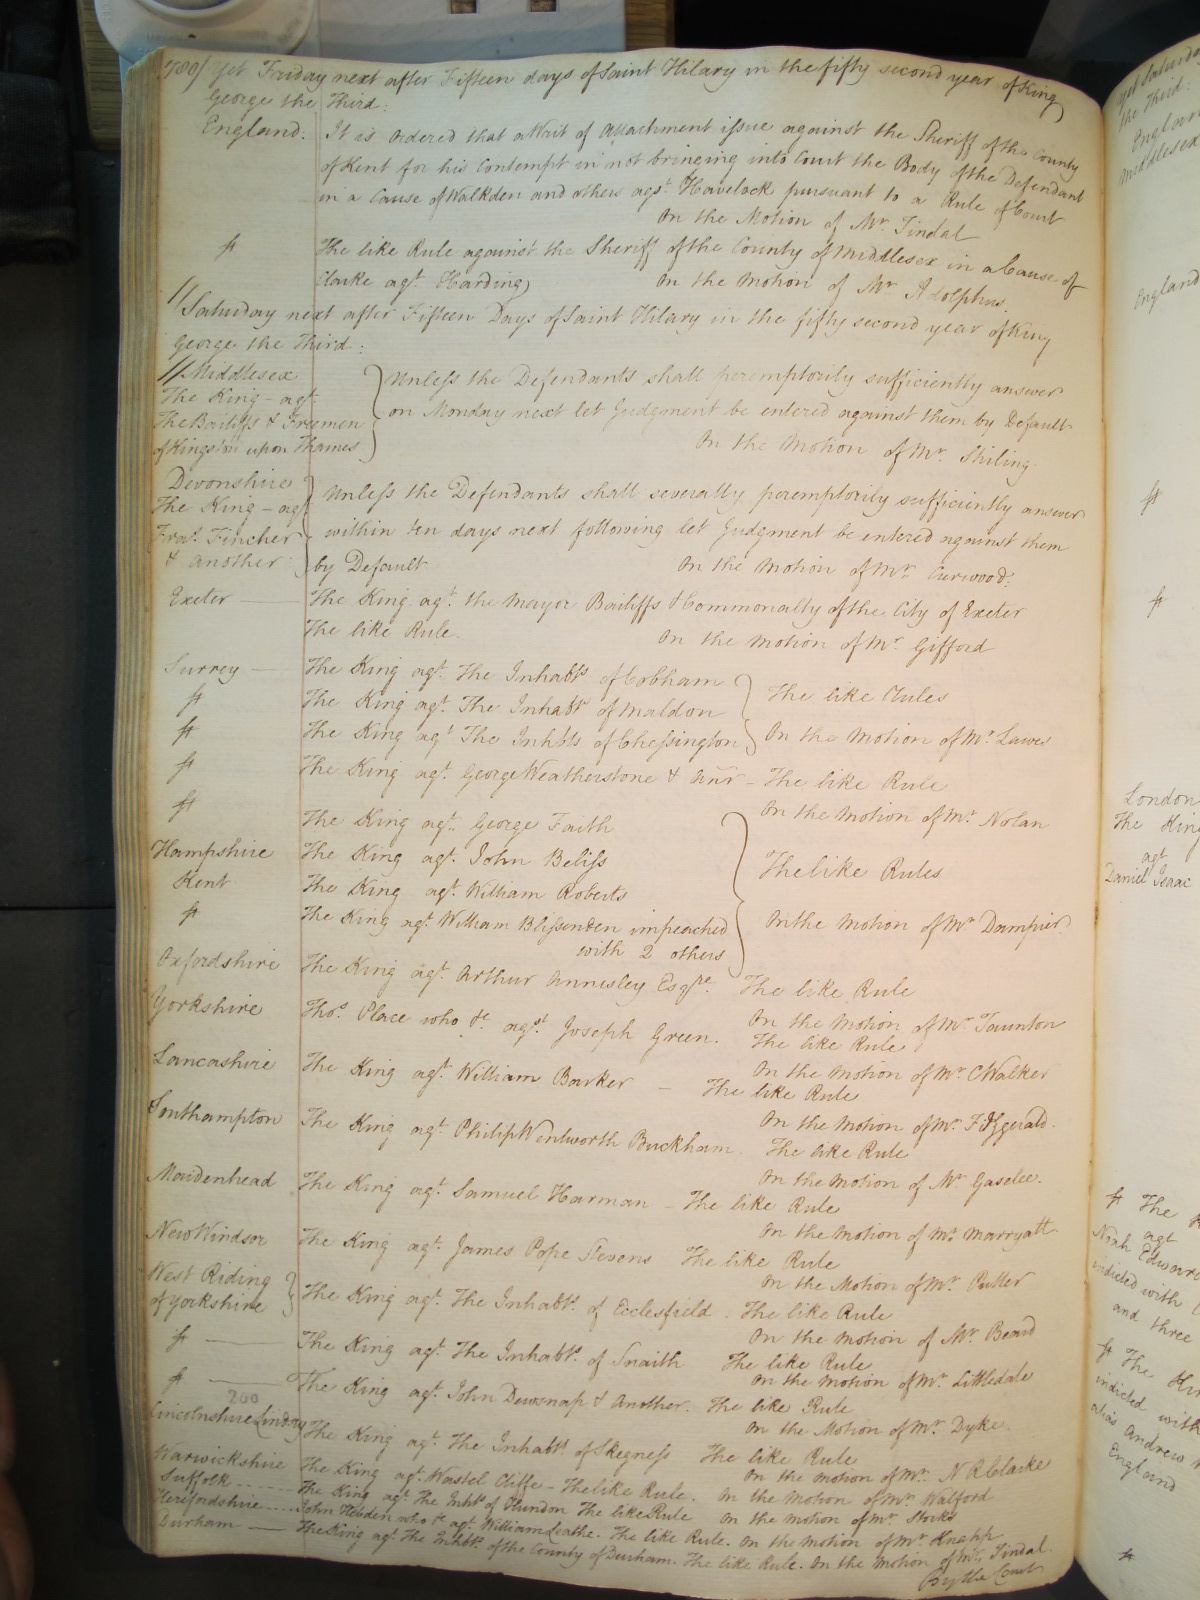 Yet Friday next after Fifteen days of Saint Hilary in the fifty second year of King
George the Third:
England. It is ordered that a Writ of Attachment issue against the Sheriff of the County
of Kent for his Contempt in not bringing into Court the Body of the Defendant
in a Cause of Walkden and others agst. Havelock pursuant to a Rule of Court
On the Motion of Mr. Tindal
The like Rule against the Sheriff of the County of Middlesex in a Cause of
Clarke agt. Harding On the Motion of Mr. Adolphus.
// Saturday next after Fifteen Days of Saint Hilary in the fifty second year of King
George the Third:
// Middlesex
The King - agt.
The Bailiffs & Freemen
of Kingston upon Thames
Unless the Defendants shall peremptorily sufficiently answer
on Monday next let Judgment be entered against them by Default
On the Motion of Mr.
Devonshire
The King - agt
Fras. Fincher
& Another
Unless the Defendants shall severally peremptorily sufficiently answer
within ten days next following let Judgment be entered against them
by Default On the Motion of Mr. Curwood.
Exeter — The King agt. the Mayor Bailiffs & Commonalty of the City of Exeter
The like Rule. On the Motion of Mr. Gifford
Surrey — The King agt. The Inhabts. of Cobham
The King agt. The Inhabts. of Maldon
The King agt. The Inhbts of Chessington
The like Rules
On the Motion of Mr. Lawes
The King agt. George Weatherstone & Anr - The like Rule
On the Motion of Mr. Nolan
The King agt. George Faith
Hampshire The King agt. John Beliss
Kent The King agt. William Roberts
The King agt. William Blissenden impeached
with 2 others
The like Rules
On the Motion of Mr. Dampier.
Oxfordshire The King agt. Arthur Annesley Esqre. The like Rule
On the Motion of Mr. Taunton
Yorkshire Thos. Place who &c. agst. Joseph Green. The like Rule
On the Motion of Mr. C Walker
Lancashire The King agt. William Barker — The like Rule
On the Motion of Mr. Fitzgerald.
Southampton The King agt. Philip Wentworth Buckham. The like Rule
On the Motion of Mr. Gaselee.
Maidenhead The King agt. Samuel Harman - The like Rule
On the Motion of Mr. Marryatt
New Windsor The King agt. James Pope Stevens The like Rule
On the Motion of Mr. Puller
West Riding
of Yorkshire
The King agt. The Inhabts. of Ecclesfield. The like Rule
On the Motion of Mr. Beard
The King agt. The Inhabts. of Snaith The like Rule
On the Motion of Mr. Littledale
The King agt. John Dewsnap & Another. The like Rule
200
On the Motion of Mr. Dyke.
Lincolnshire Lindsey The King agt. The Inhabts. of Skegness The like Rule
On the Motion of Mr. N R Clarke
Warwickshire The King agt. Wastel Cliffe - The like Rule. On the Motion of Mr. Walford
Suffolk The King agt. The Inhbts of Hundon The like Rule On the Motion of Mr. Storks
Herefordshire John Hebden who &c agt. William Leathe. The like Rule. On the Motion of Mr. Knapp
Durham — The King agt. The Inhbts. of the County of Durham. The like Rule. On the Motion of Mr. Tindal
By the Court
Yet Saturday
the Third:
England
Middlesex
England
London
The King
agt
Daniel Isaac
The
agt
indicted with
and three
The King
indicted with
alias Andrew
England